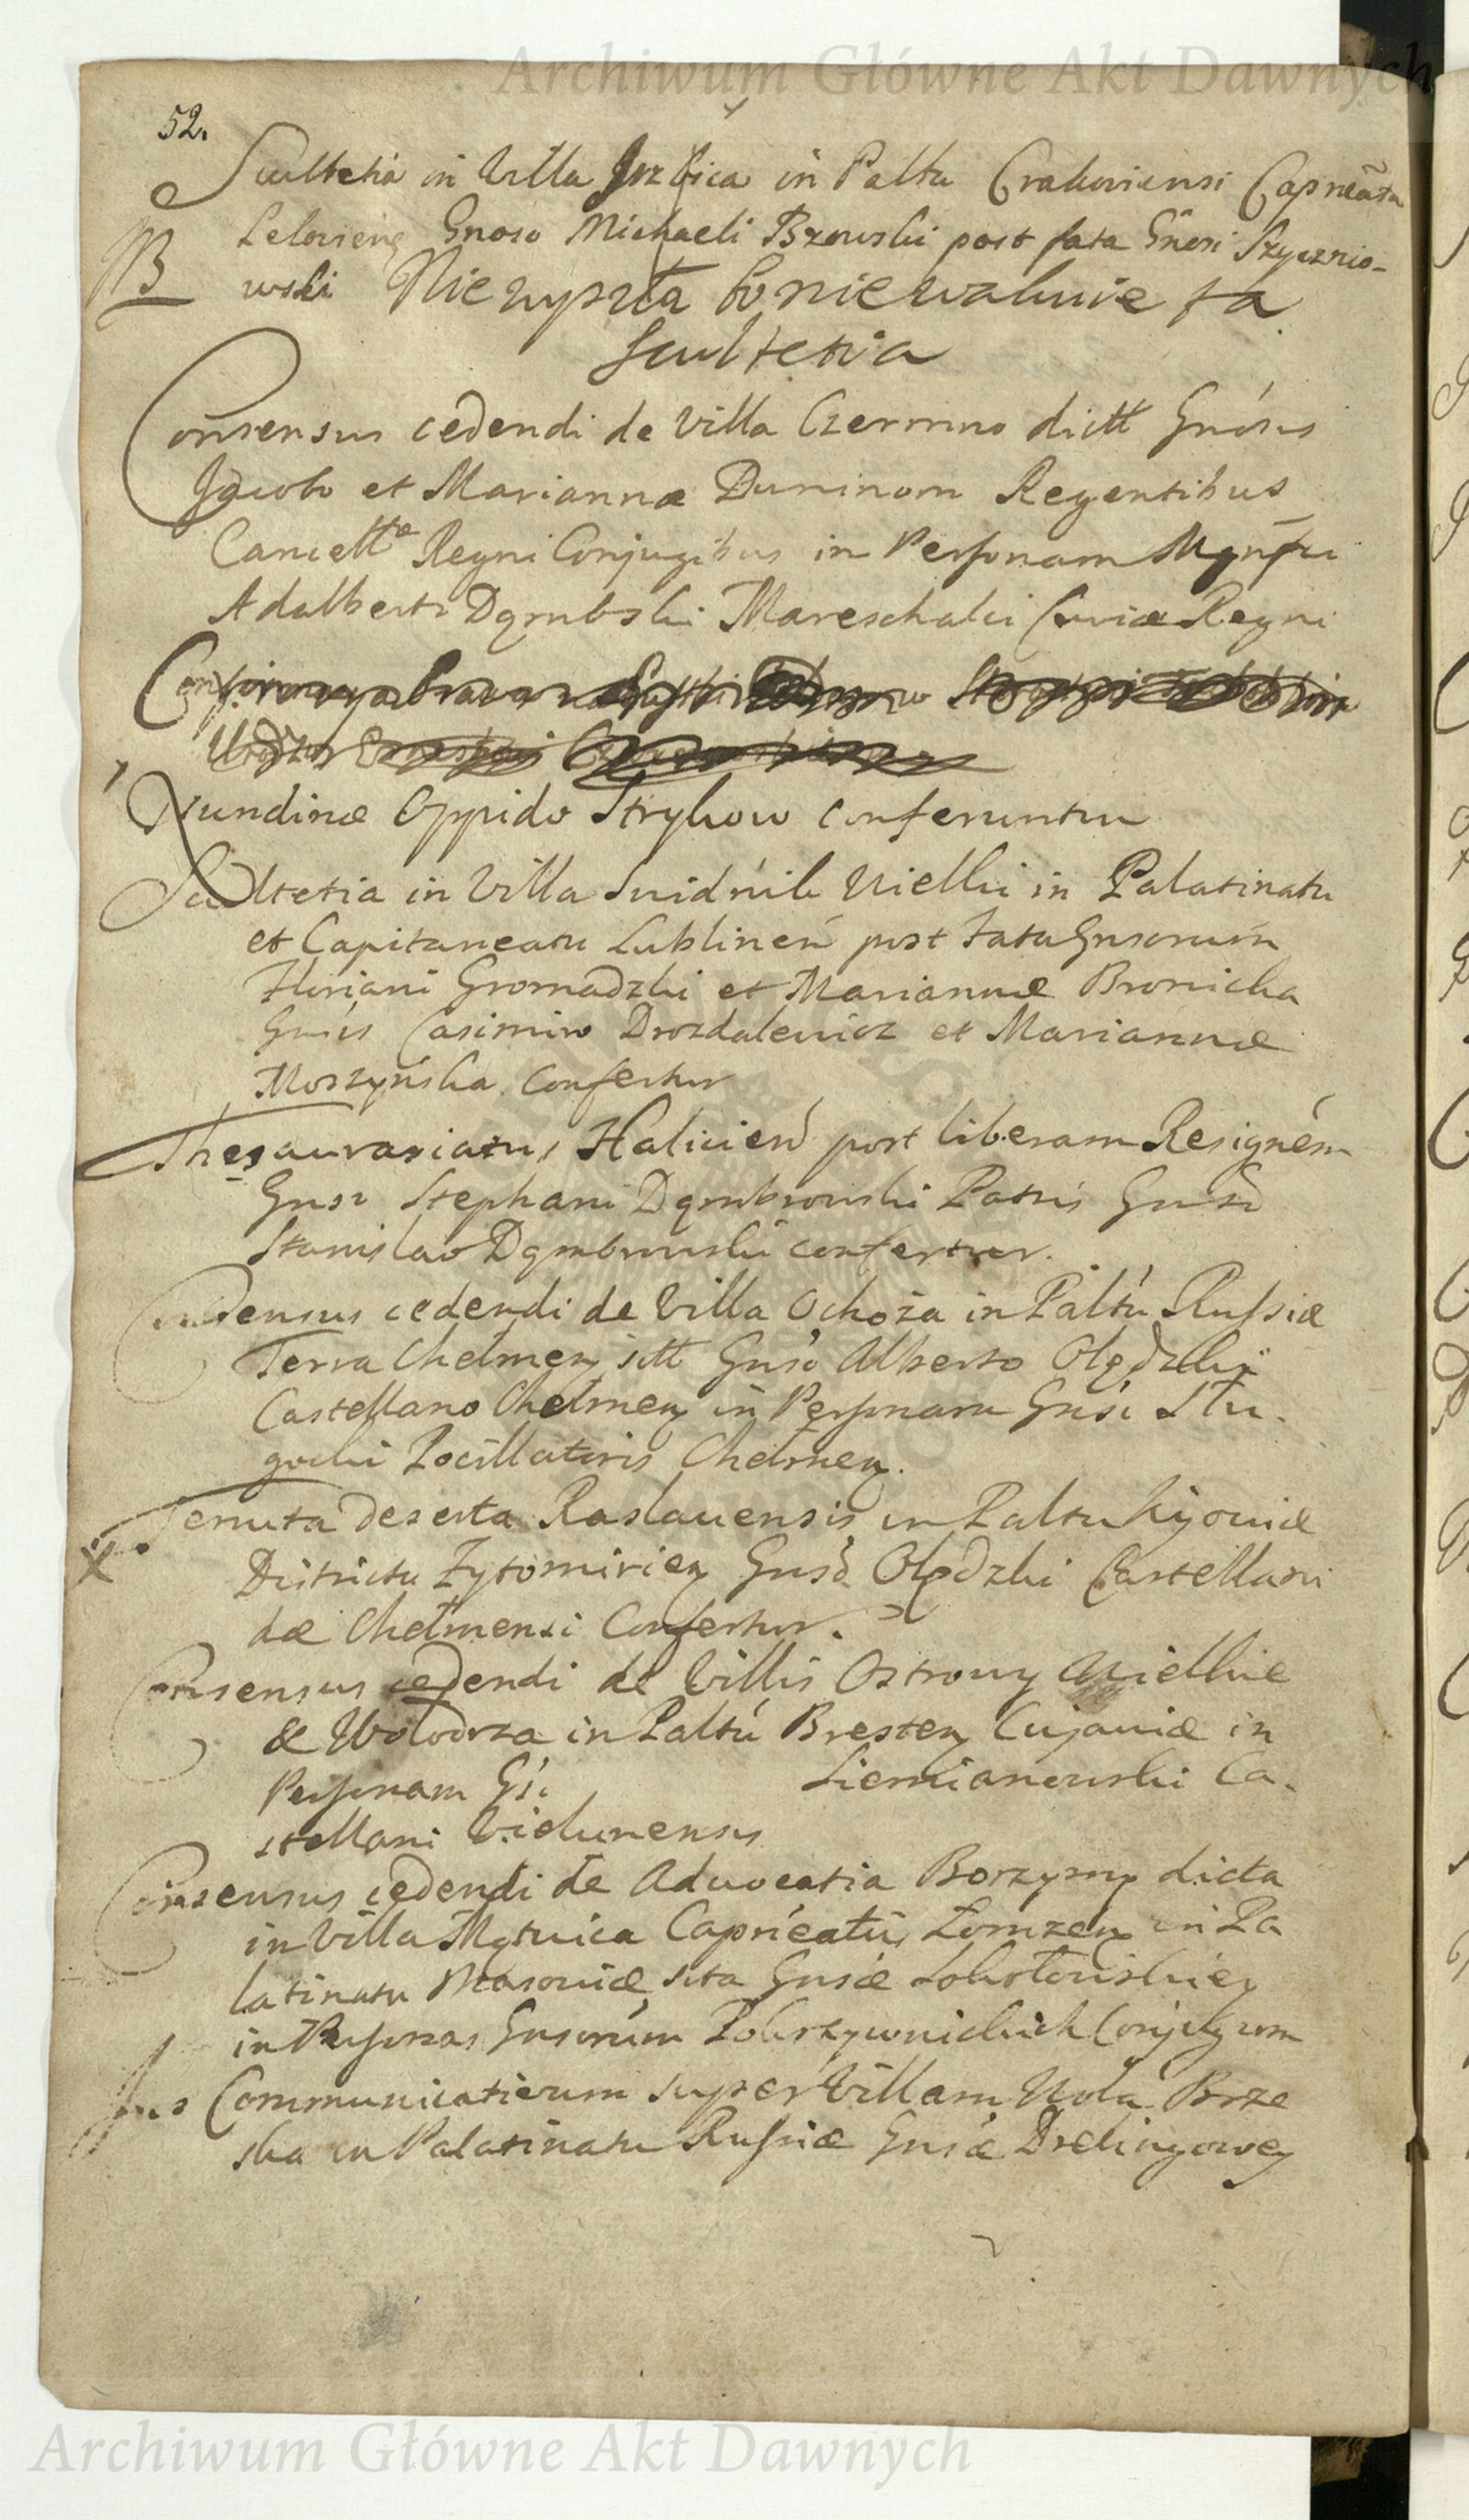 Archiwum Główne Akt Dawnych
52.
Scultetia in Villa in Paltu Crakoviensi Capneatu
Leloviens Gnoso Michaeli Bzowski post fata Gnosi Szyeznio-
NB wski Niewyszła bo niewakuie ta
Scultetia
Consensus cedendi de Villa Czermno dict Gnosis
Jacobo et Mariannæ Duninom Regentibus
Cancellæ Regni Conjugibus in Personam Mgnfci
Adalberti Dąmbski Mareschalci Curiæ Regni
Nundinæ Oppido Strykow conferuntur
Scultetia in Villa Suidnik Wielki in Palatinatu
et Capitaneatu Lublinen post Fata Gnsorum
Floriani Gromadzki et Mariannæ Bronicka
Gnsis Casimiro Drozdalewicz et Mariannæ
Moszyńska Confertur
Thesaurariatus Halicien post liberam Resignem
Gnsi Stephani Dąmbrowski Patris Gnso
Stanislao Dąmbrowski confertur.
Consensus cedendi de Villa Ochoża in Paltu Russiæ
Terra Chelmen sitt Gnso Alberto Olędzki
Castellano Chełmen in Personam Gnsi Słu-
gocki Pocillatoris Chełmen.
X Tenuta deserta Raslavensis in Paltu Kijoviæ
Districtu Żytomirien Gnso Olędzki Castellani
dæ Chełmensi Confertur.
Consensus cedendi de Villis Ostrowy Wielkie
& Wołodrza in Paltu Bresten Cujaviæ in
Personam Gsi Siemianowski Ca-
stellani Vielunensis
Consensus cedendi de Advocatia Borzymy dicta
in Villa Mętwica Capneatu Łomzen in Pa
latinatu Masoviæ sita Gnsæ Sokołowskiey
in Personas Gnsorum Pokrzywnickich Conjugum
Jus Communicativum super Villam Wola Brze
ska in Palatinatu Russiæ Gnsæ Drelingowey
Archiwum Główne Akt Dawnych